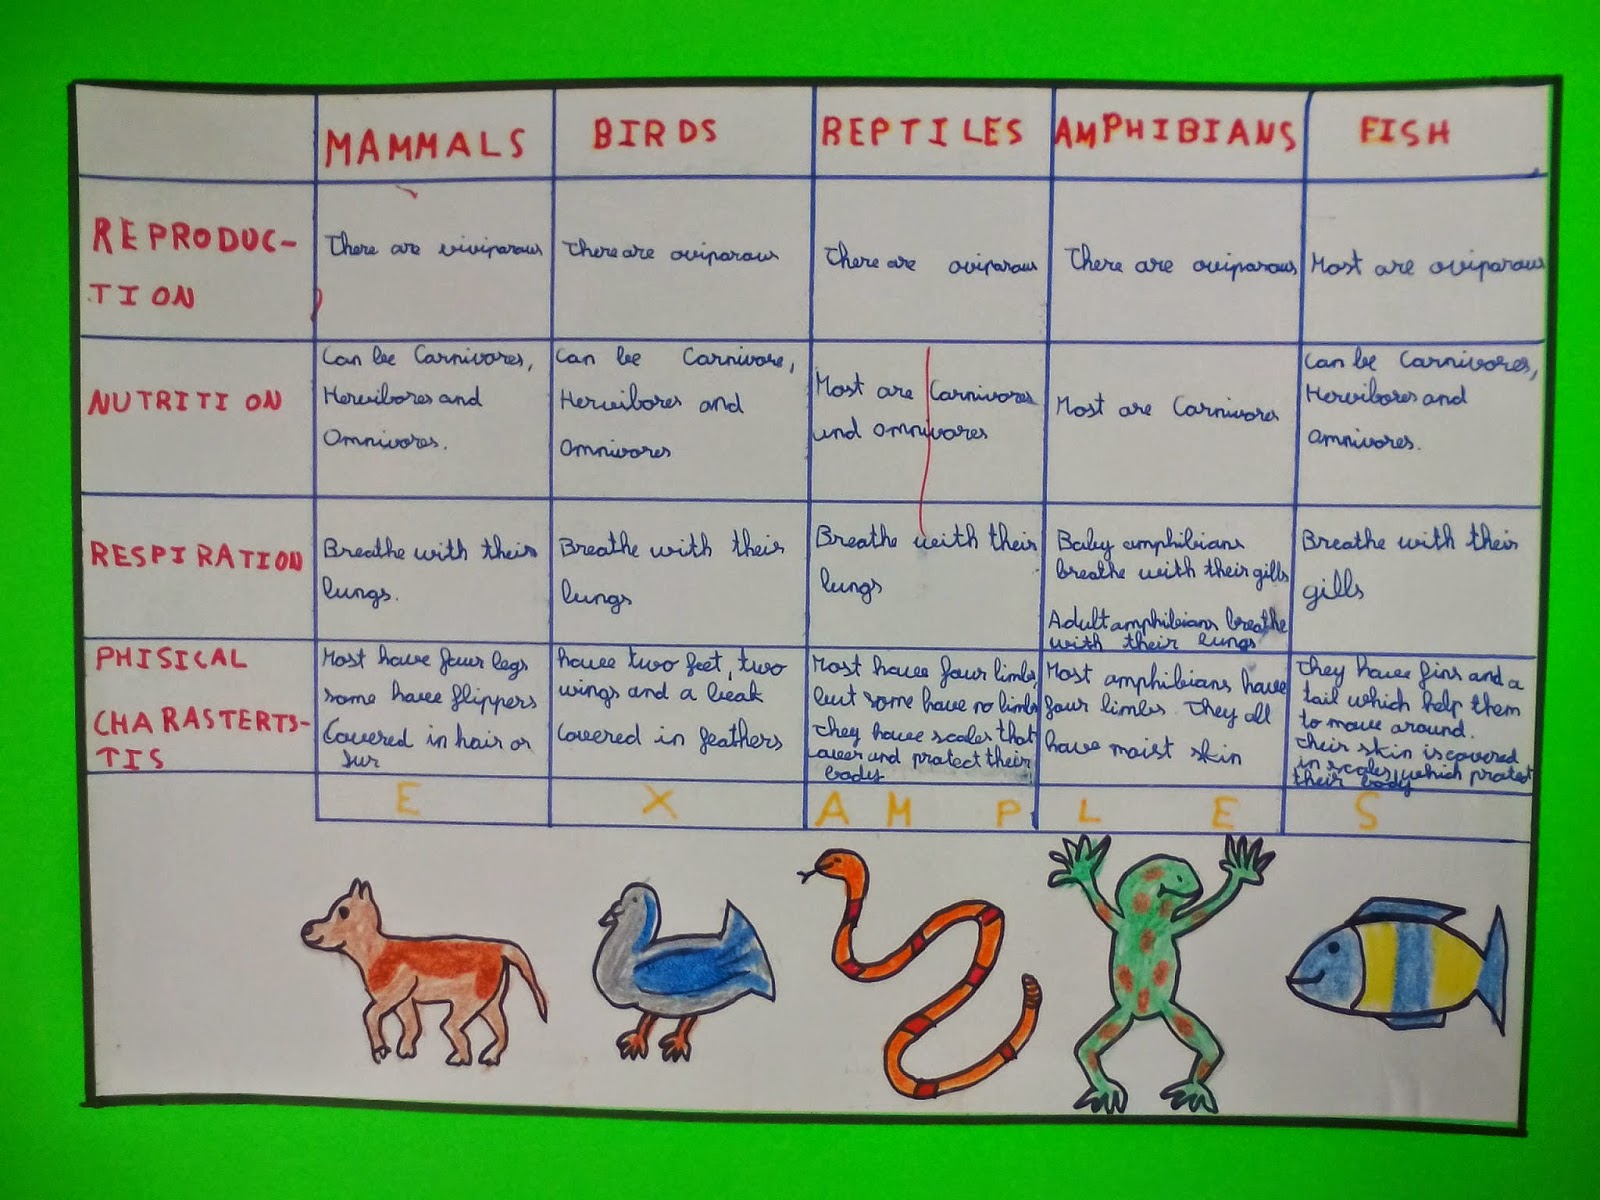 MAMMALS BIRDS REPTILES AMPHIBIANS FISH
REPRODUC-
TION
There are viviparous
There are oviparous
There are oviparous
There are oviparous
Most are oviparous
NUTRITION
Can be Carnivores,
Hervibores and
Omnivores.
Can be Carnivore,
Hervibores and
Omnivores
Most are Carnivores
and omnivores
Most are Carnivores
Can be Carnivores,
Hervibores and
omnivores.
RESPIRATION
Breathe with their
lungs.
Breathe with their
lungs
Breathe with their
lungs
Baby amphibians
breathe with their gills
Adult amphibians breathe
with their lungs
Breathe with their
gills
PHISICAL
CHARASTERTS-
TIS
Most have four legs
some have flippers
Covered in hair or
fur
have two feet, two
wings and a beak
Covered in feathers
Most have four limbs,
but some have no limbs
They have scales that
cover and protect their
body
Most amphibians have
four limbs. They all
have moist skin
They have fins and a
tail which help them
to move around.
Their skin is covered
in scales, which protect
their body
E X A M P L E S